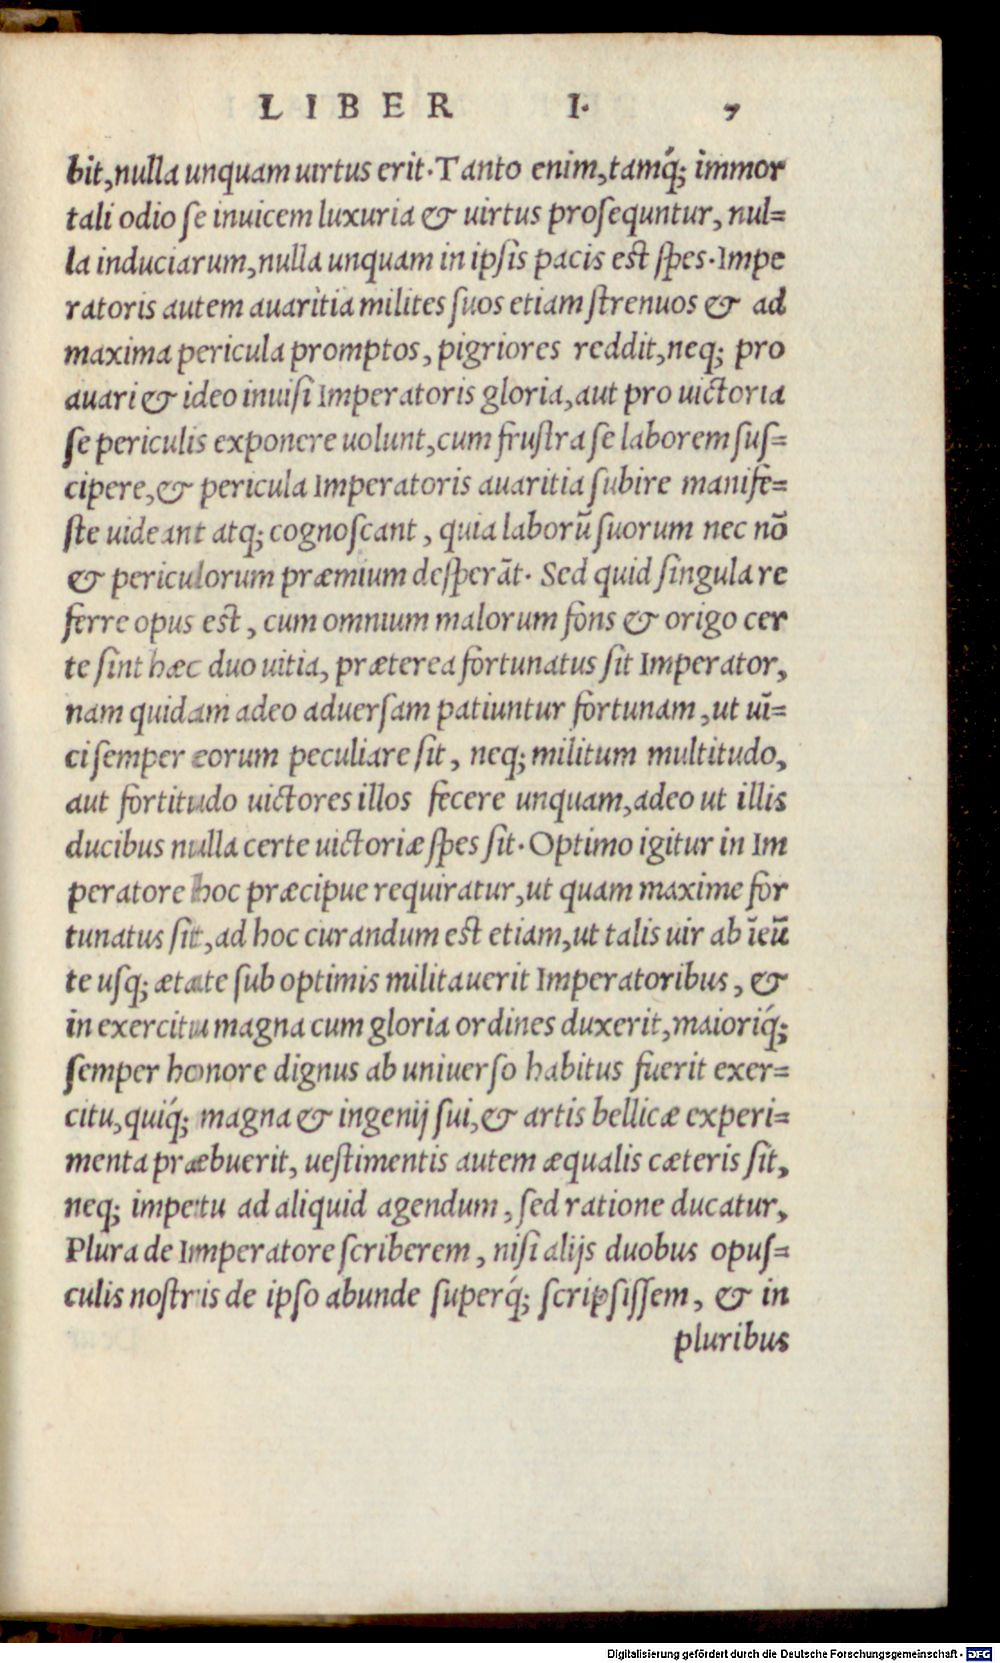 LIBER I. 7
bit,nulla unquam uirtus erit.Tanto enim,tamq́; immor
tali odio se inuicem luxuria & uirtus prosequntur, nul=
la induciarum,nulla unquam in ipsis pacis est spes.Impe
ratoris autem auaritia milites suos etiam strenuos & ad
maxima pericula promptos, pigriores reddit,neq; pro
auari & ideo inuisi Imperatoris gloria,aut pro uictoria
se periculis exponere uolunt,cum frustra se laborem sus=
cipere,& pericula Imperatoris auaritia subire manife=
ste uideant atq; cognoscant, quia laborũ suorum nec nõ
& periculorum præmium desperãt. Sed quid singula re
ferre opus est, cum omnium malorum fons & origo cer
te sint hæc duo uitia, præterea fortunatus sit Imperator,
nam quidam adeo aduersam patiuntur fortunam, ut uĩ=
ci semper eorum peculiare sit, neq; militum multitudo,
aut fortitudo uictores illos fecere unquam,adeo ut illis
ducibus nulla certe uictoriæ spes sit. Optimo igitur in Im
peratore hoc præcipue requiratur,ut quam maxime for
tunatus sit,ad hoc curandum est etiam,ut talis uir ab ĩeũ
te usq; ætate sub optimis militauerit Imperatoribus, &
in exercitu magna cum gloria ordines duxerit,maioriq́;
semper honore dignus ab uniuerso habitus fuerit exer=
citu,quiq́; magna & ingenij sui,& artis bellicæ experi=
menta præbuerit, uestimentis autem æqualis cæteris sit,
neq; impetu ad aliquid agendum, sed ratione ducatur,
Plura de Imperatore scriberem, nisi alijs duobus opus=
culis nostris de ipso abunde superq́; scripsissem, & in
pluribus
Digitalisierung gefördert durch die Deutsche Forschungsgemeinschaft - DFG